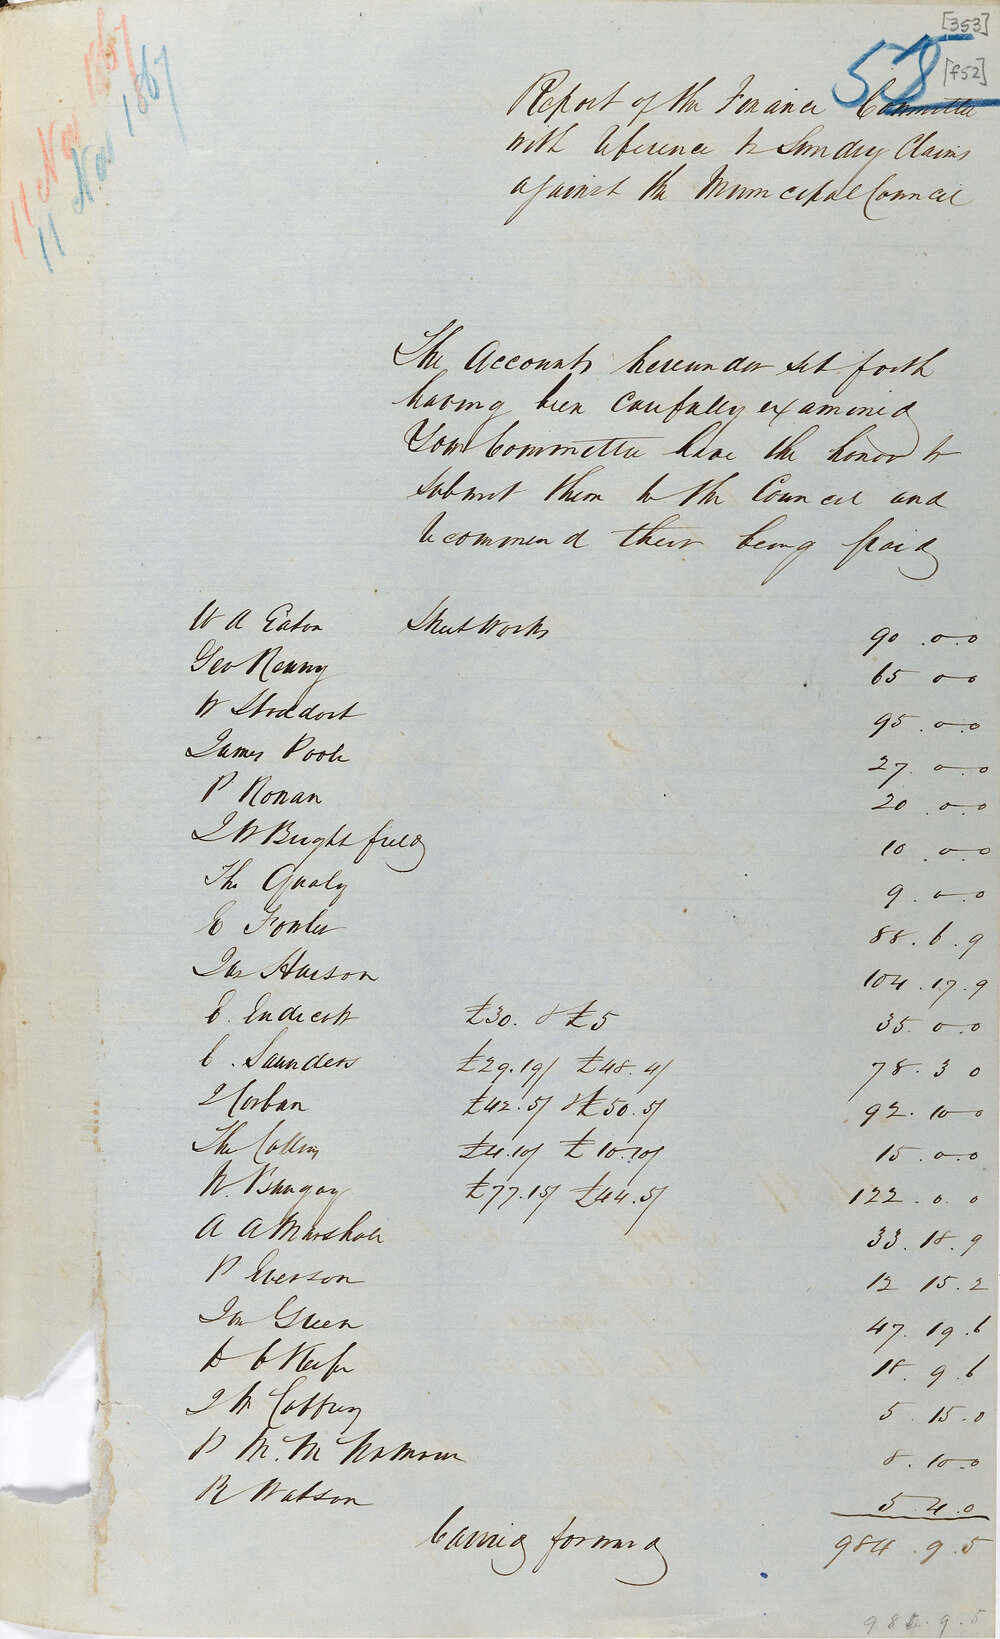 [353]
58
[f52]
11 Nov 1867
11 Nov 1867
Report of the Finance Committee
with reference to Sundry Claims
against the Municipal Council
The Accounts hereunder set forth
having been carefully examined
Your Committee have the honor to
submit them to the Council and
recommend their being paid
W A Eaton Street Works 90.0.0
Geo Renny 65 0.0
W Stoddart 95.0.0
James Poole 27.0.0
P Ronan 20.0.0
J W Brightfield 10.0.0
Tho Qualy 9.0.0
E Fowler 88.6.9
Jas Hanson 104.17.9
E. Endicott £30. & £5 35.0.0
C. Saunders £29.19/ £48.4/ 78.3 0
J Corban £42.5/ & £50.5/ 92.10.0
Tho Collins £4.10/ £10.10/ 15.0.0
W. £77.15/ £44.5/ 122.0.0
A A Marshall 33.18.9
P Everson 12 15.2
Jas Green 47.19.6
D O'Keefe 18.9.6
J W Caffrey 5.15.0
P M. McNamara 8.10.0
R Watson 5.4.0
Carried forward 984.9.5
984.9.5